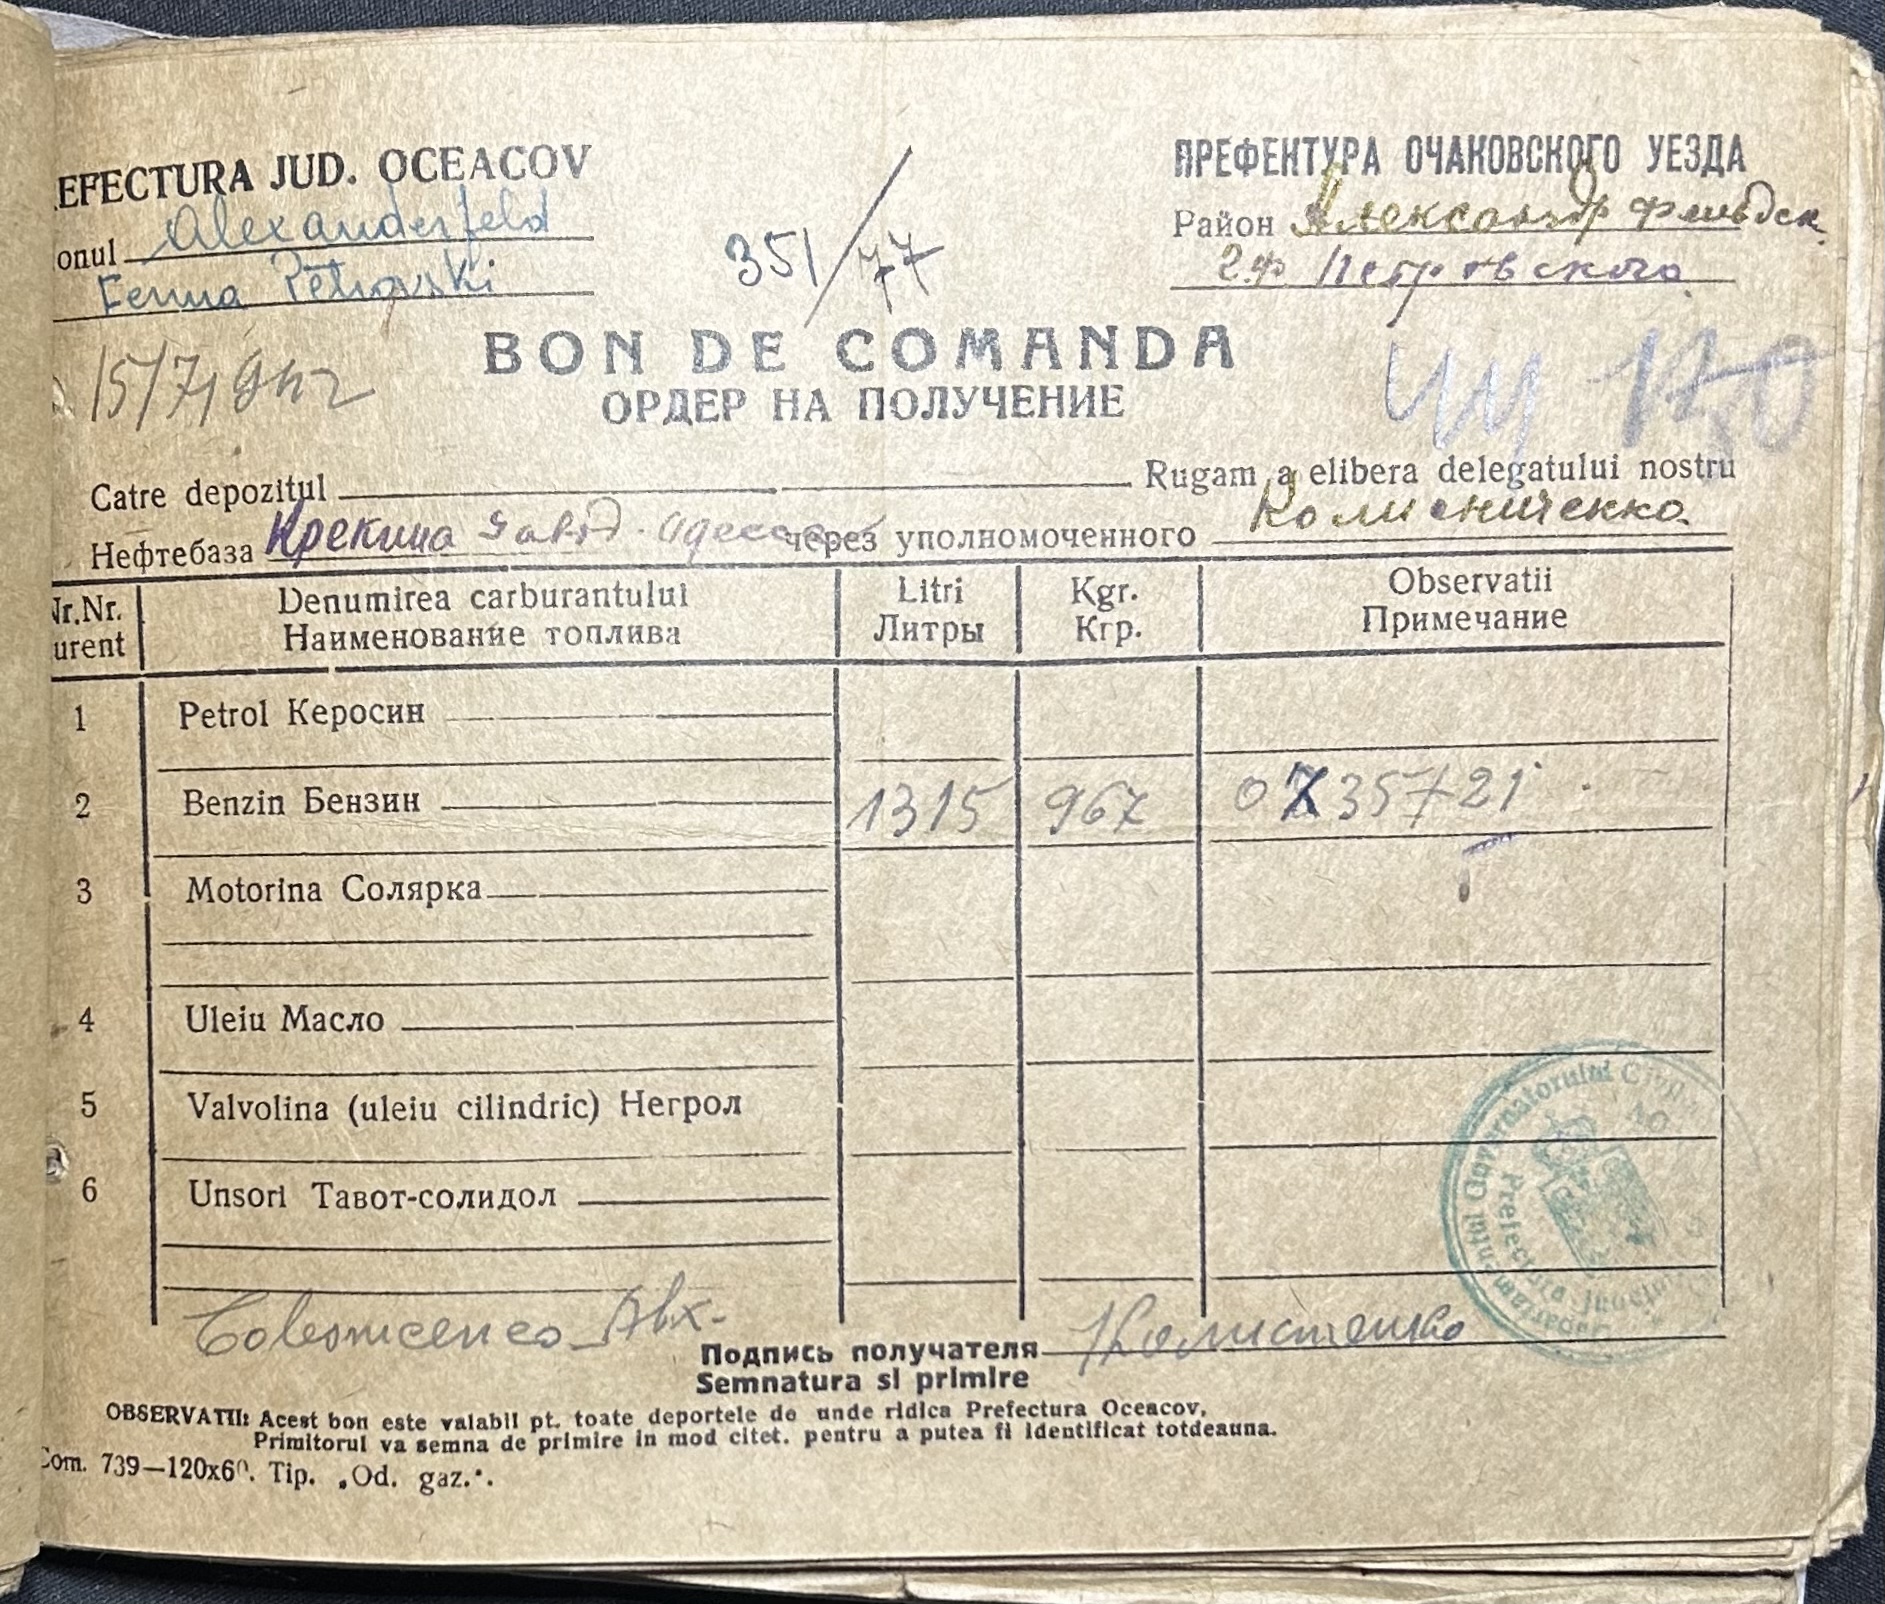 EFECTURA JUD. OCEACOV
onul Alexanderfeld
Ferma Petrovski
351/77
ПРЕФЕНТУРА ОЧАКОВСКОГО УЕЗДА
Район Александрфельдск.
г.ф Петровского
15/7 1942
BON DE COMANDA
ОРДЕР НА ПОЛУЧЕНИЕ
Catre depozitul Rugam a elibera delegatului nostru
Нефтебаза Крекинг завод Одесса через уполномоченного
Nr.Nr. Denumirea carburantului Litri Kgr. Observatii
urent Наименование топлива Литры Кгр. Примечание
1 Petrol Керосин
2 Benzin Бензин 1315 967 0,735+21
3 Motorina Солярка
4 Uleiu Масло
5 Valvolina (uleiu cilindric) Негрол
6 Unsori Тавот-солидол
Colesnicenco Alx.
Подпись получателя
Semnatura si primire
OBSERVATII: Acest bon este valabil pt. toate deportele de unde ridica Prefectura Oceacov.
Primitorul va semna de primire in mod citet. pentru a putea fi identificat totdeauna.
Com. 739—120x60. Tip. „Od. gaz.".
Guvernatorului Civil
Prefectura Judetului